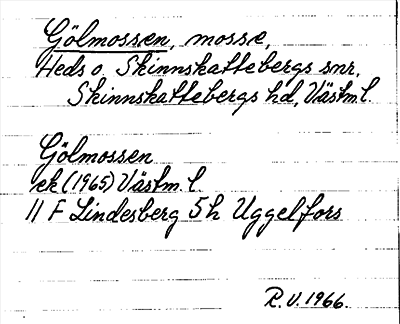 Gölmossen, mosse,
Heds o. Skinnskattebergs snr,
Skinnskattebergs hd, Västm.l.
Gölmossen
ek (1965) Västm. l.
11 F Lindesberg 5h Uggelfors
R.V. 1966.